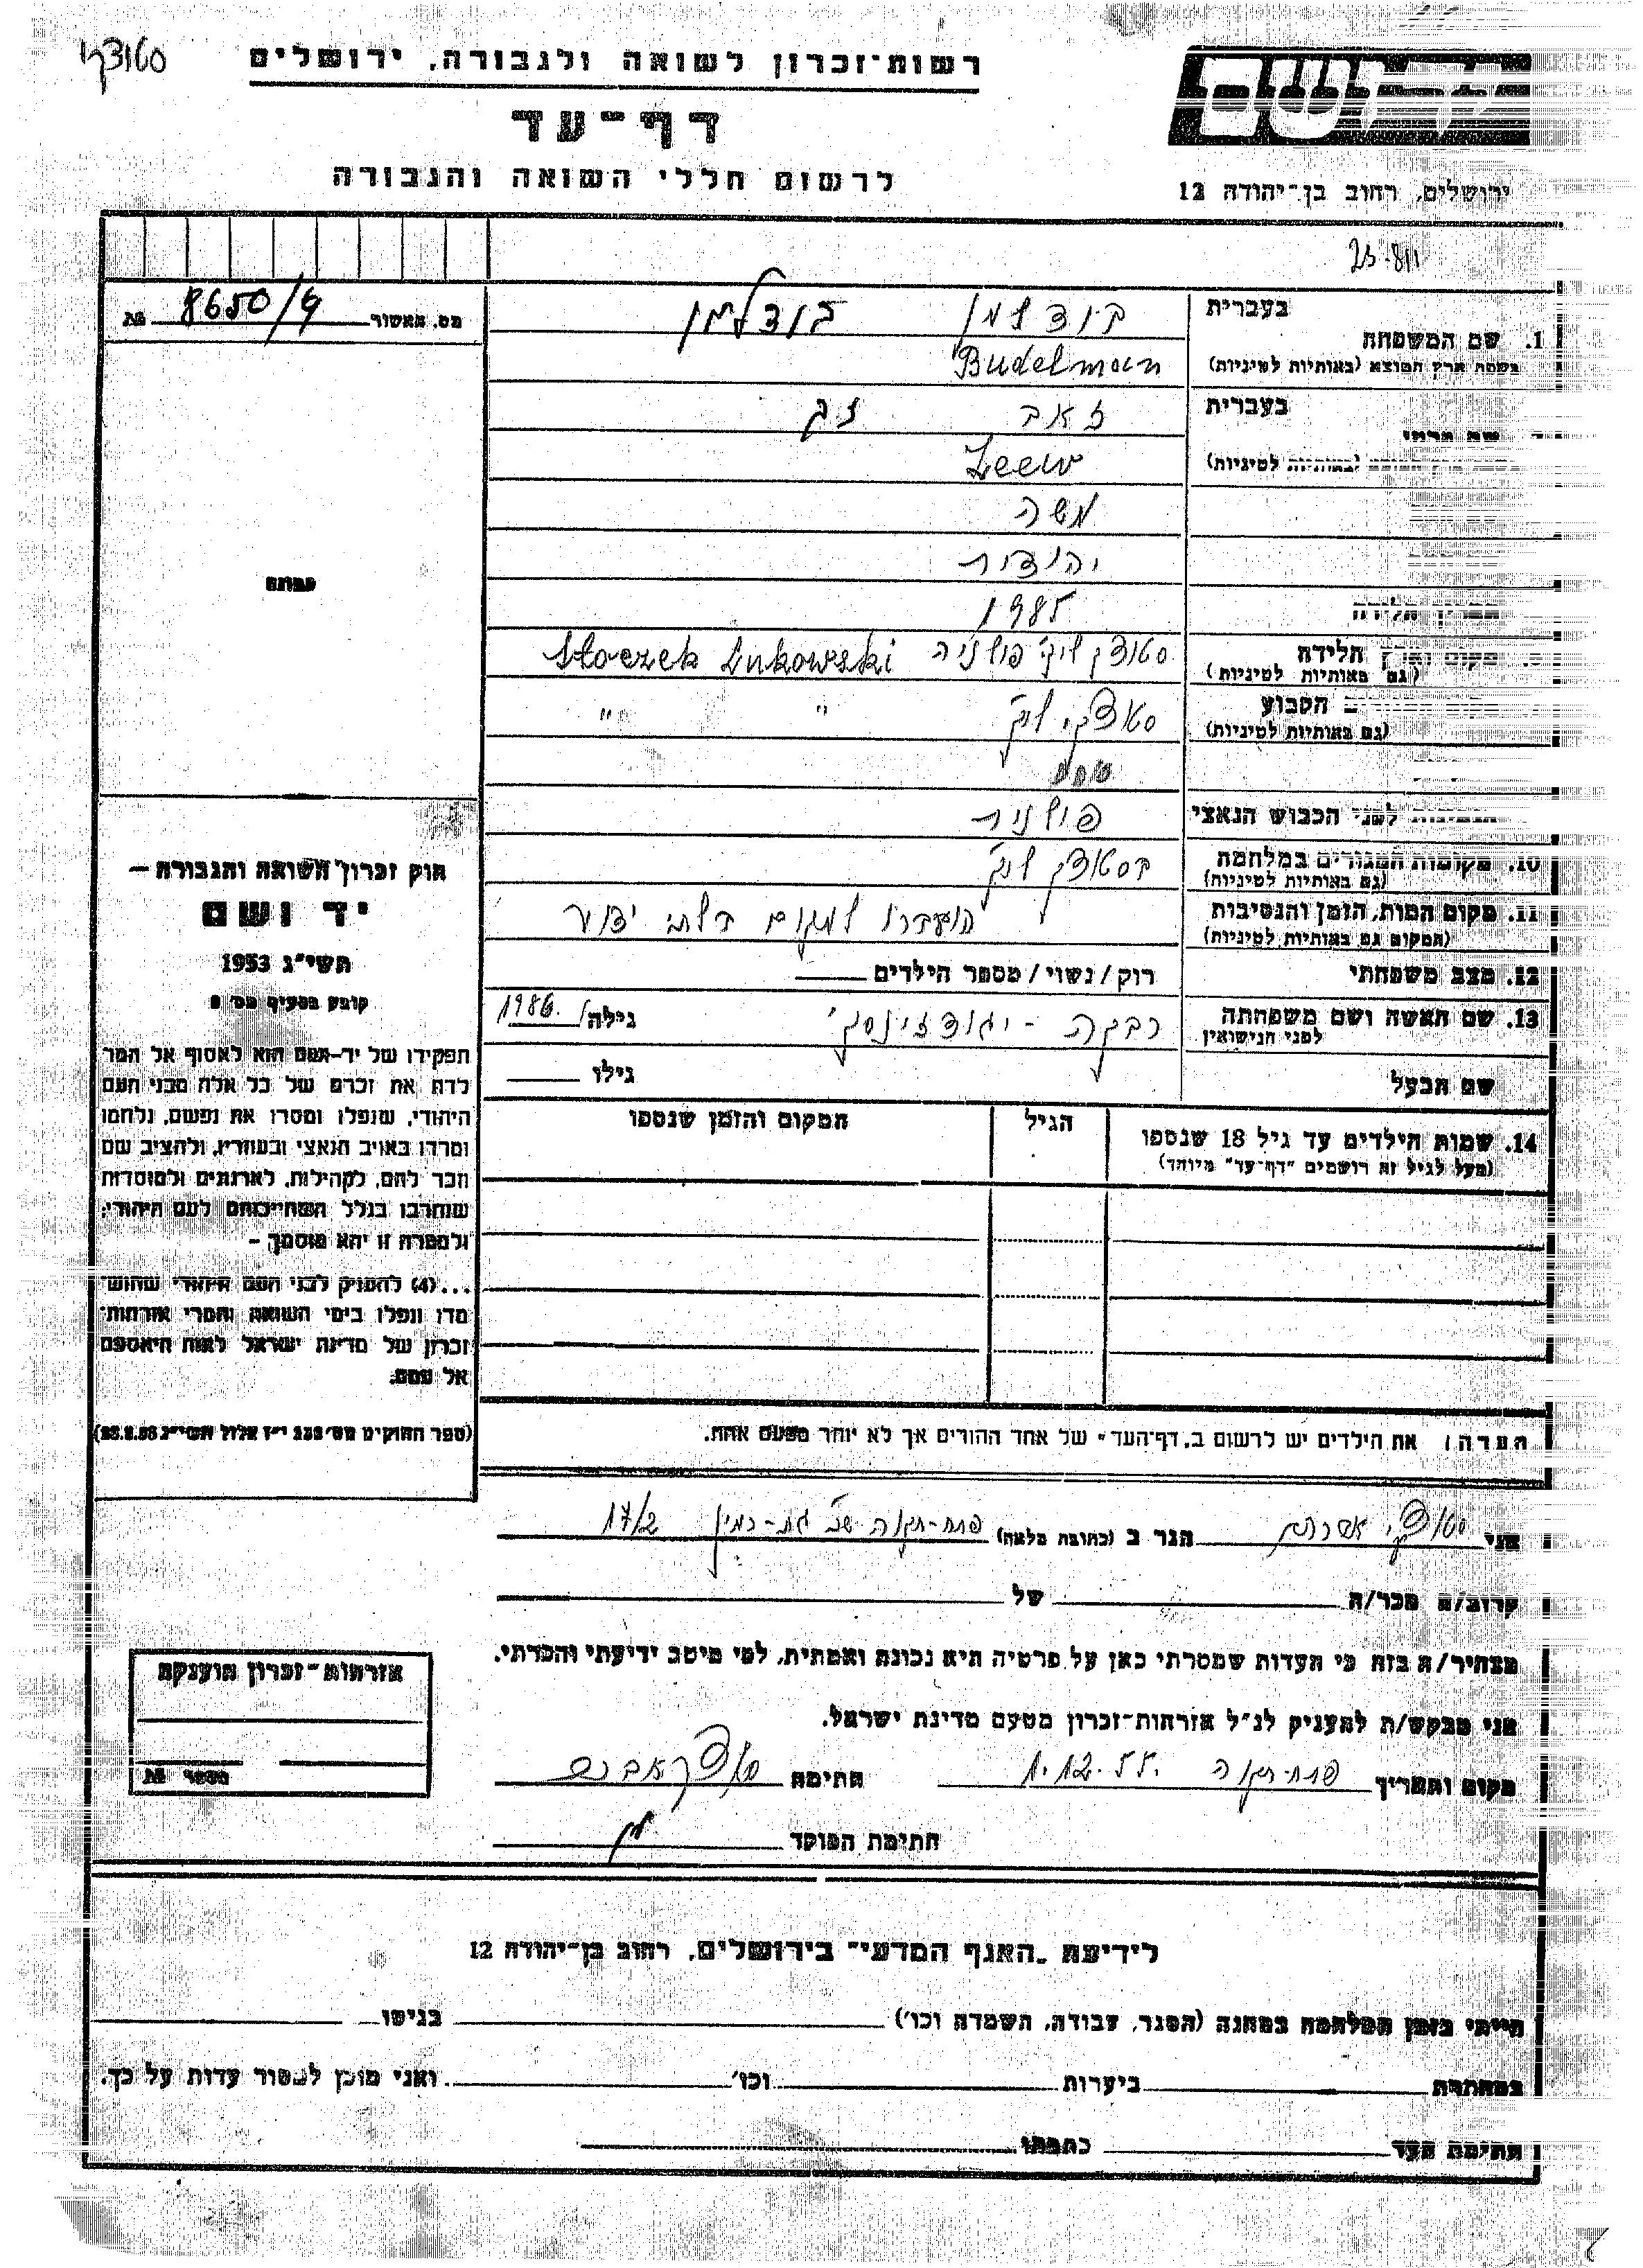 סטודקי
רשות־זכרון לשואה ולגבורה, ירושלים
דף־עד
לרשום חללי השואה והגבורה
ירושלים, רחוב בן־יהודה 12
23.811
מס. מאשור 8650/9 №
בעברית
1. שם המשפחה
בודלמן בודלמן
בשפת ארץ המוצא (באותיות לטיניות)
Budelman
בעברית
זאב
לטיניות)
Zeew
משה
יהודית
1985
הלידה
(גם באותיות לטיניות)
פולניה Stoczek Lukowski
הקבוע
(גם באותיות לטיניות)
" "
לפני הכבוש הנאצי
פולנית
10. מקומות המגורים במלחמה
(גם באותיות לטיניות)
11. מקום המות, הזמן והנסיבות
(המקום גם באותיות לטיניות)
הועברו למקום בלתי ידוע
12. מצב משפחתי
רוק/נשוי/מספר הילדים
13. שם האשה ושם משפחתה
לפני הנישואין
רבקה - יגודזינסקי
גילה 1986
שם הבעל
גילו
14. שמות הילדים עד גיל 18 שנספו
(מעל לגיל זה רושמים "דף־עד" מיוחד)
הגיל
המקום והזמן שנספו
הערה: את הילדים יש לרשום ב"דף־העד" של אחד ההורים אך לא יותר מפעם אחת.
תמונה
חוק זכרון השואה והגבורה –
יד ושם
תשי"ג 1953
קובע בסעיף מס'
תפקידו של יד–ושם הוא לאסוף אל המו
לדת את זכרם של כל אלה מבני העם
היהודי, שנפלו ומסרו את נפשם, נלחמו
ומרדו באויב הנאצי ובעוזריו, ולהציב שם
וזכר להם, לקהילות, לארגונים ולמוסדות
שנחרבו בגלל השתייכותם לעם היהודי;
ולמטרה זו יהא מוסמך –
...(4) להעניק לבני העם היהודי שהוש־
מדו ונפלו בימי השואה והמרי אזרחות־
זכרון של מדינת ישראל לאות היאספם
אל עמם.
אני סטודקי אברהם הגר ב (כתובת מלאה) פתח-תקוה 17/2
קרוב/ה מכר/ה של
מצהיר/ה בזה כי העדות שמסרתי כאן על פרטיה היא נכונה ואמתית, לפי מיטב ידיעתי והכרתי.
אני מבקש/ת להעניק לנ"ל אזרחות־זכרון מטעם מדינת ישראל.
מקום ותאריך פתח-תקוה 1.12.55. חתימה
חתימת הפוקד
אזרחות־זכרון מוענקת
מספר №
לידיעת "האגף המדעי" בירושלים, רחוב בן־יהודה 12
הייתי בזמן המלחמה במחנה (הסגר, עבודה, השמדה וכו') בגיטו
במחתרת ביערות וכו' ואני מוכן למסור עדות על כך.
חתימת העד כתבתו